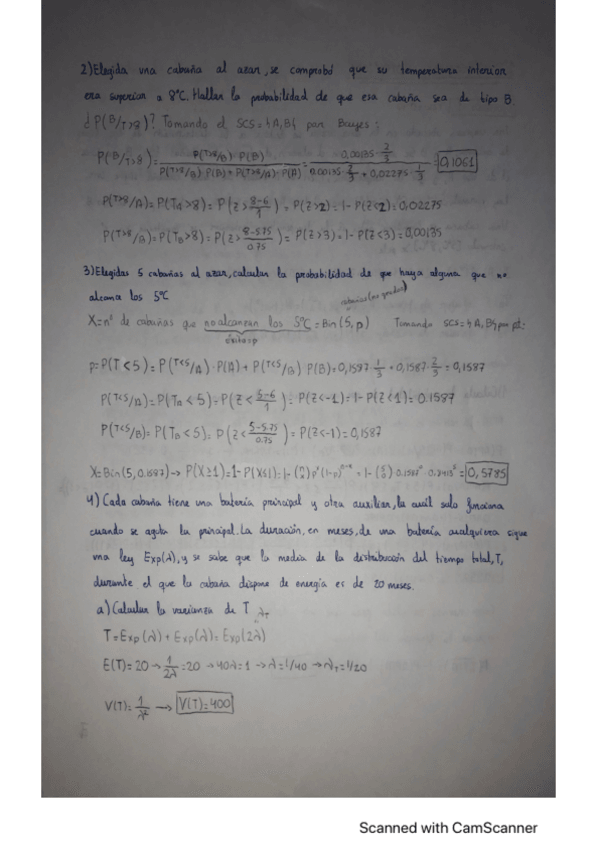 2) Elegida una cabaña al azar, se comprobó que su temperatura interior
era superior a 8°C. Hallar la probabilidad de que esa cabaña sea de tipo B.
¿P(B/T>8)? Tomando el SCS={A,B} por Bayes:
P(B/T>8)= P(T>8/B)·P(B) / P(T>8/B)·P(B)+P(T>8/A)·P(A) = 0,00135·2/3 / 0,00135·2/3+0,02275·1/3 = 0,1061
P(T>8/A)=P(TA>8)=P(Z>8-6/1)=P(Z>2)=1-P(Z<2)=0,02275
P(T>8/B)=P(TB>8)=P(Z>8-5.75/0.75)=P(Z>3)=1-P(Z<3)=0,00135
3) Elegidas 5 cabañas al azar, calcular la probabilidad de que haya alguna que no
alcanza los 5°C
X=nº de cabañas que no alcanzan los 5°C=Bin(5,p) Tomando SCS={A,B}, por pt:
éxito=p
p=P(T<5)=P(T<5/A)·P(A)+P(T<5/B)·P(B)=0,1587·1/3+0,1587·2/3=0,1587
P(T<5/A)=P(TA<5)=P(Z<5-6/1)=P(Z<-1)=1-P(Z<1)=0.1587
P(T<5/B)=P(TB<5)=P(Z<5-5.75/0.75)=P(Z<-1)=0,1587
X=Bin(5,0.1587)→P(X≥1)=1-P(X≤1)=1-(n x)p^x(1-p)^n-x=1-(5 0)·0.1587^0·0.8413^5=0,5785
4) Cada cabaña tiene una batería principal y otra auxiliar, la cuál solo funciona
cuando se agota la principal. La duración, en meses, de una batería cualquiera sigue
una ley Exp(λ), y se sabe que la media de la distribución del tiempo total, T,
durante el que la cabaña dispone de energía es de 20 meses.
a) Calcular la varianza de T
λT
T=Exp(λ)+Exp(λ)=Exp(2λ)
E(T)=20→1/2λ=20→40λ=1→λ=1/40→λT=1/20
V(T)=1/λ²→V(T)=400
Scanned with CamScanner